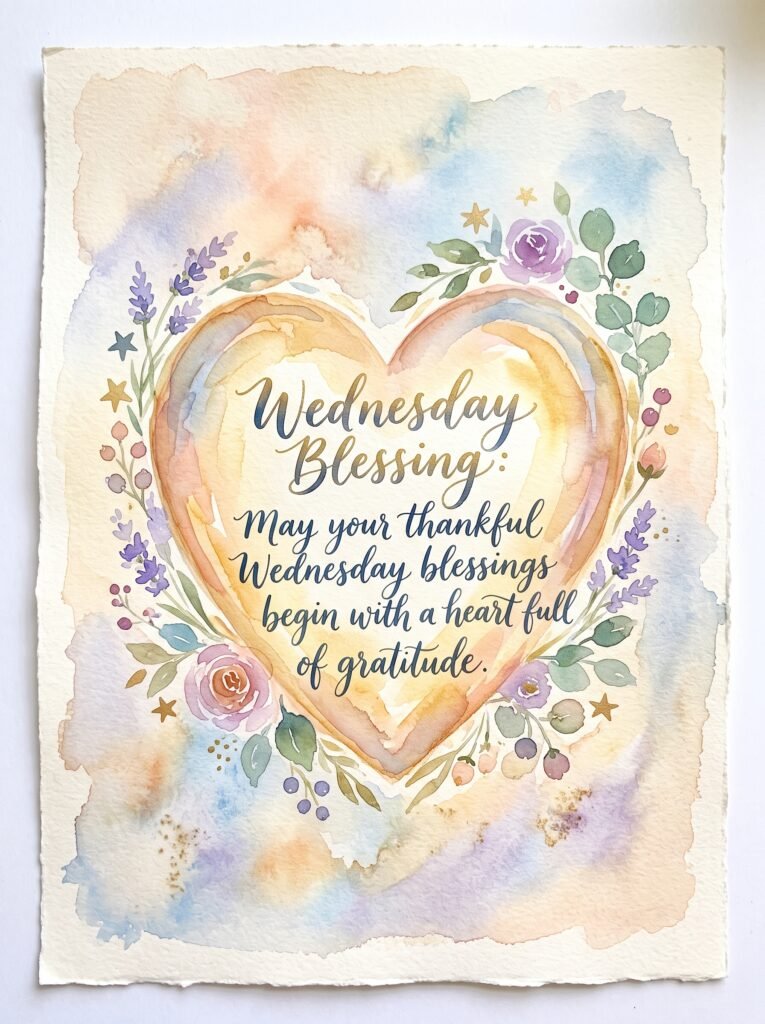 Wednesday
Blessing:
May your thankful
Wednesday blessings
begin with a heart full
of gratitude.